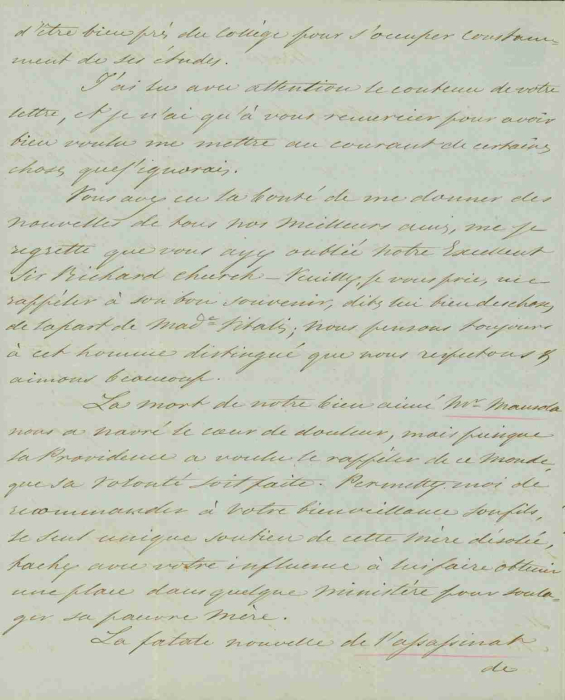 d'être bien près du Collége pour s'occuper constam=
ment de ses études.
J'ai lu avec attention le contenu de votre
lettre, et je n'ai qu'à vous remercier pour avoir
bien voulu me mettre au courant de certaines
choses que j'ignorais.
Vous avez eu la bonté de me donner des
nouvelles de tous nos meilleurs amis, je
regrette que vous ayez oublié notre Excellent
Sir Richard Church – Veuillez, je vous prie, me
rappéler à son bon souvenir, dites lui bien des choses,
de la part de Mad.e Vitalis; nous pensons toujours
à cet homme distingué que nous respectons &
aimons beaucoup.
La mort de notre bien aimé Mr. Mansola
nous a navré le cœur de douleur, mais puisque
la Providence a voulu le rappéler de ce Monde,
que sa Volonté soit faite. Permettez-moi de
recommander à votre bienveillance son fils,
le seul unique soutien de cette Mère désolée,
tachez avec votre influence à lui faire obtenir
une place dans quelque Ministère pour soula=
ger sa pauvre Mère.
La fatale nouvelle de l'assassinat
de